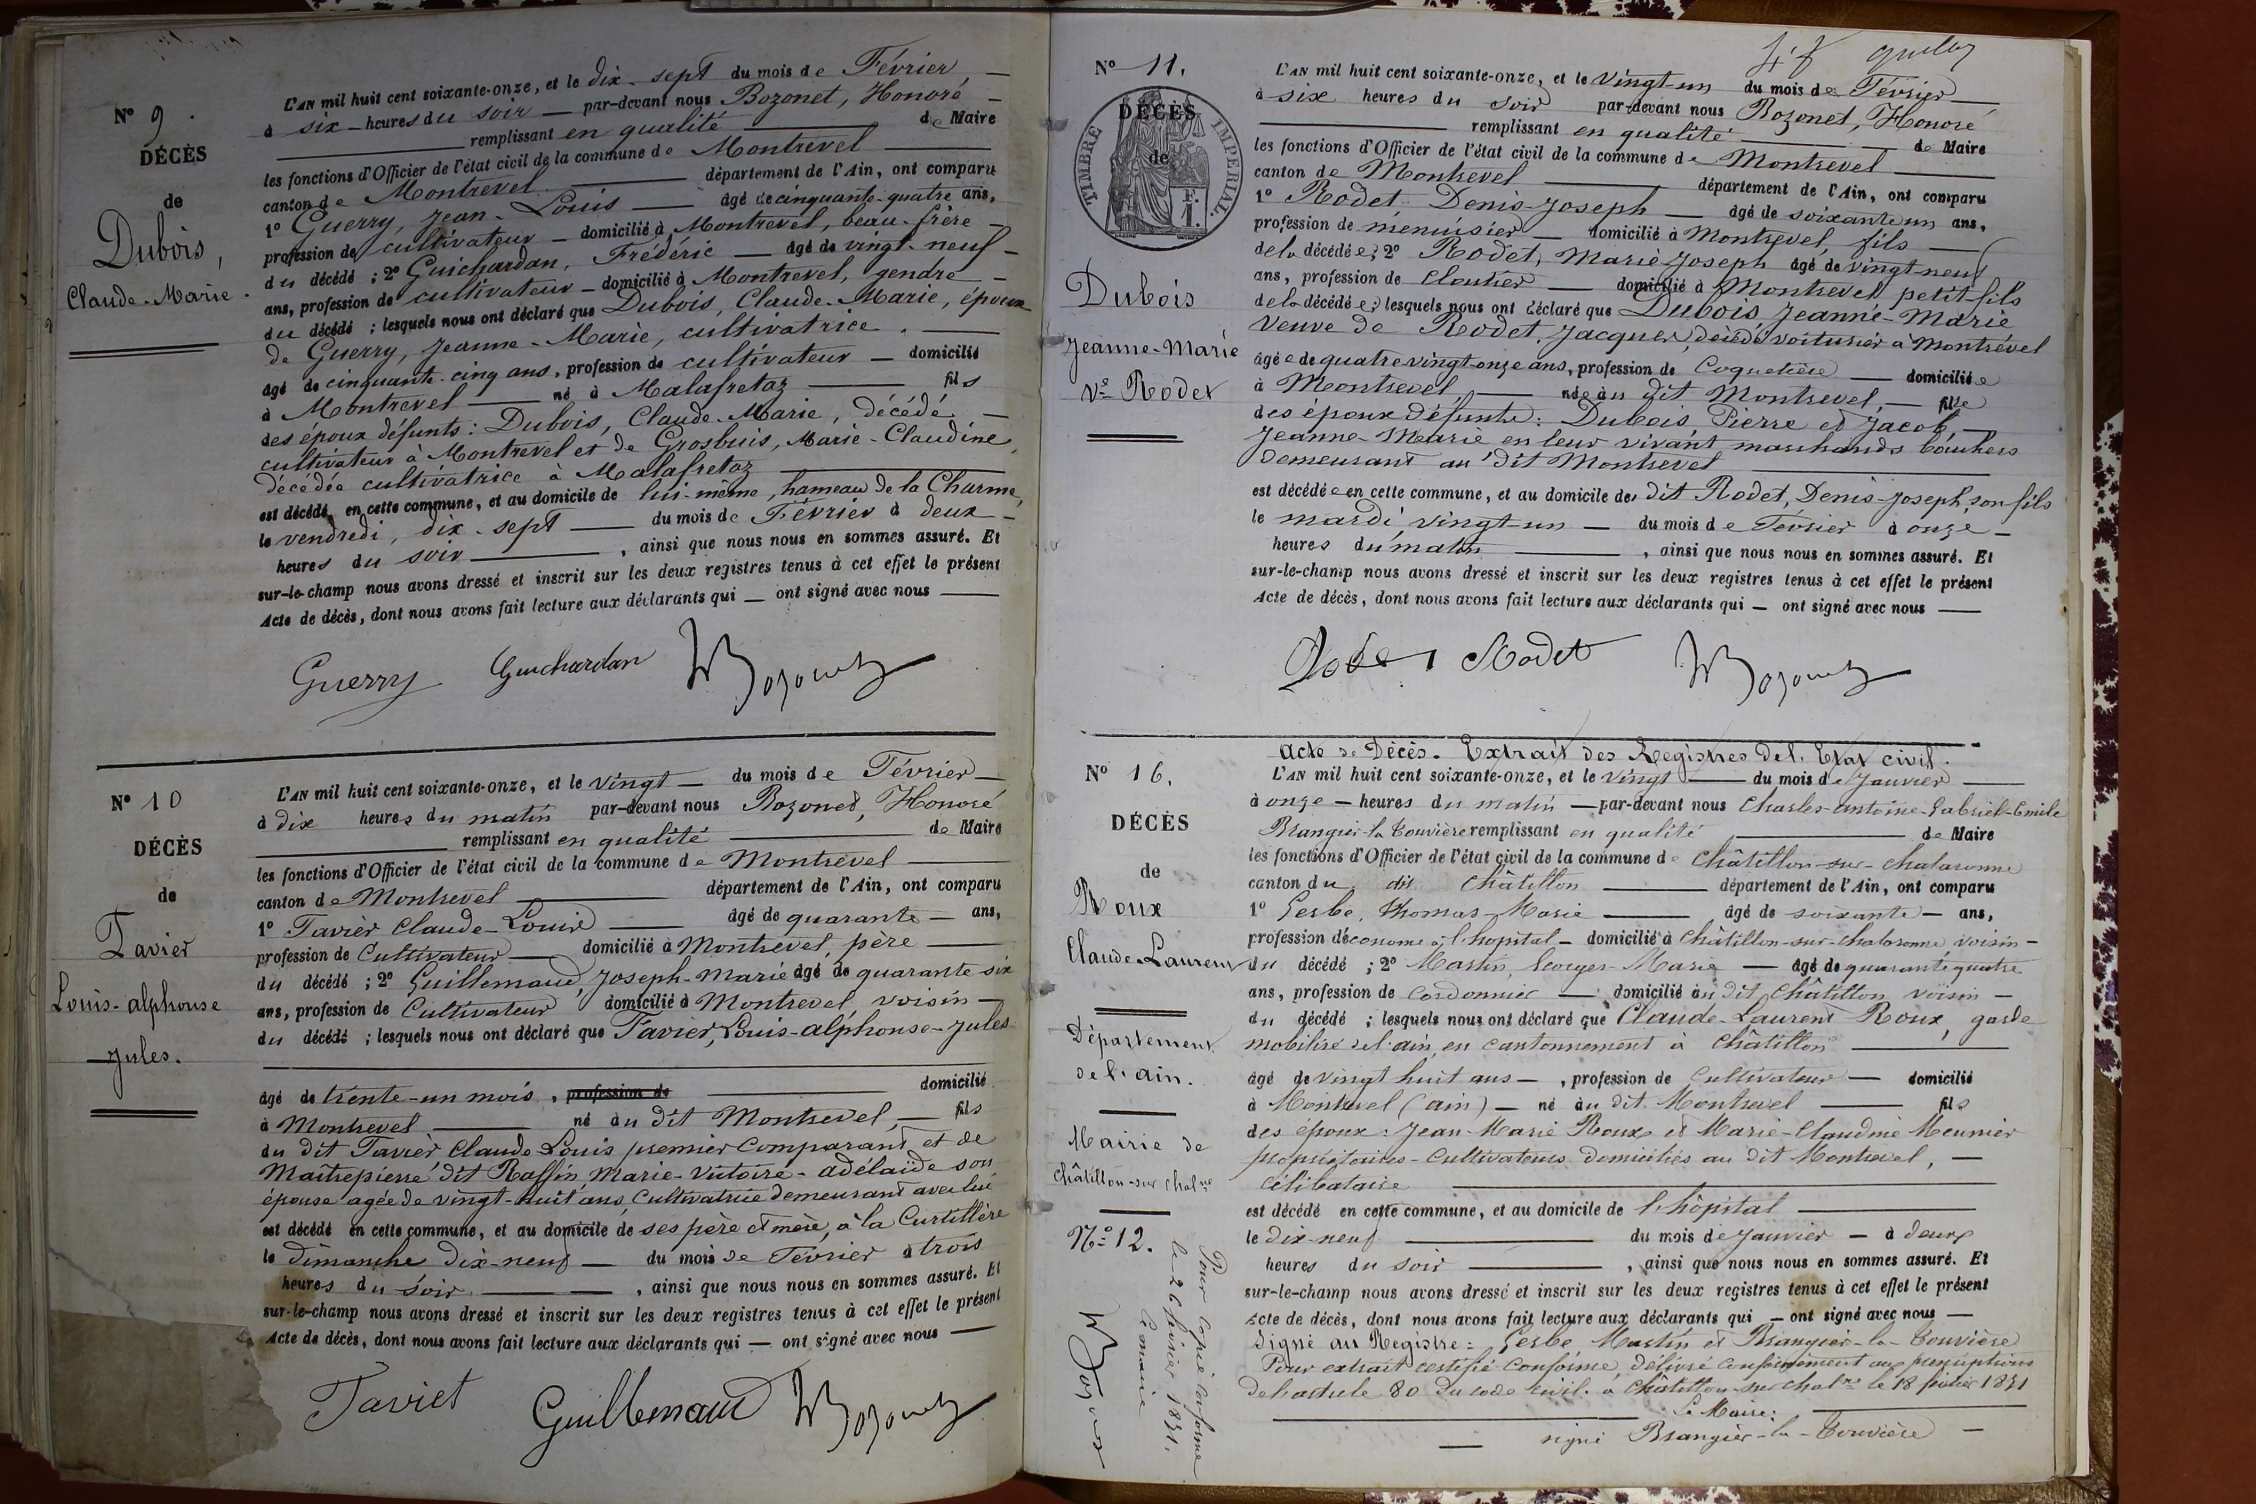 N° 9.
DÉCÈS
de
Dubois,
Claude-Marie.
L'AN mil huit cent soixante-onze, et le dix-sept du mois de Février
à six heures du soir par-devant nous Bozonet, Honoré
remplissant en qualité de Maire
les fonctions d'Officier de l'état civil de la commune de Montrevel
canton de Montrevel département de l'Ain, ont comparu
1° Guerry, Jean-Louis âgé de cinquante-quatre ans,
profession de cultivateur domicilié à Montrevel, beau-frère
du décédé ; 2° Guichardan, Frédéric âgé de vingt-neuf
ans, profession de cultivateur domicilié à Montrevel, gendre
du décédé ; lesquels nous ont déclaré que Dubois, Claude-Marie, époux
de Guerry, Jeanne-Marie, cultivatrice.
âgé de cinquante-cinq ans, profession de cultivateur domicilié
à Montrevel né à Malafretaz fils
des époux défunts : Dubois, Claude-Marie, décédé
cultivateur à Montrevel et de Grosbuis, Marie-Claudine,
décédée cultivatrice à Malafretaz
est décédé en cette commune, et au domicile de lui-même, hameau de la Charme,
le vendredi, dix-sept du mois de Février à deux
heures du soir, ainsi que nous nous en sommes assuré. Et
sur-le-champ nous avons dressé et inscrit sur les deux registres tenus à cet effet le présent
Acte de décès, dont nous avons fait lecture aux déclarants qui — ont signé avec nous
Guerry Guichardan Bozonet
N° 10
DÉCÈS
de
Tavier
Louis-alphonse
Jules.
L'AN mil huit cent soixante-onze, et le vingt du mois de Février
à dix heures du matin par-devant nous Bozonet, Honoré
remplissant en qualité de Maire
les fonctions d'Officier de l'état civil de la commune de Montrevel
canton de Montrevel département de l'Ain, ont comparu
1° Tavier Claude-Louis âgé de quarante ans,
profession de Cultivateur domicilié à Montrevel, père
du décédé ; 2° Guillemaud, Joseph-Marie âgé de quarante six
ans, profession de Cultivateur domicilié à Montrevel, voisin
du décédé ; lesquels nous ont déclaré que Tavier, Louis-alphonse-Jules
âgé de trente-un mois, profession de domicilié
à Montrevel né au dit Montrevel, fils
du dit Tavier Claude Louis premier Comparant et de
Maitrepierre dit Raffin, Marie-Victoire-adélaïde son
épouse agée de vingt-huit ans, Cultivatrice demeurant avec lui
est décédé en cette commune, et au domicile de ses père et mère, à la Curtillère
le dimanche dix-neuf du mois de Février à trois
heures du soir, ainsi que nous nous en sommes assuré. Et
sur-le-champ nous avons dressé et inscrit sur les deux registres tenus à cet effet le présent
Acte de décès, dont nous avons fait lecture aux déclarants qui — ont signé avec nous
Taviet Guillemaud Bozonet
N° 11.
TIMBRE IMPERIAL.
F. 1.
DÉCÈS
de
Dubois
Jeanne-Marie
Vve Rodet
L'AN mil huit cent soixante-onze, et le Vingt-un du mois de Février
à six heures du soir par-devant nous Bozonet, Honoré
remplissant en qualité de Maire
les fonctions d'Officier de l'état civil de la commune de Montrevel
canton de Montrevel département de l'Ain, ont comparu
1° Rodet Denis-Joseph âgé de soixante un ans,
profession de menuisier domicilié à Montrevel, fils
de la décédée ; 2° Rodet, Marie Joseph âgé de vingt neuf
ans, profession de Cloutier domicilié à Montrevel petit-fils
de la décédée ; lesquels nous ont déclaré que Dubois Jeanne-Marie
Veuve de Rodet, Jacques, décédé voiturier à Montrevel
âgée de quatre vingt-onze ans, profession de Coquetière domiciliée
à Montrevel née au dit Montrevel, fille
des époux défunts : Dubois Pierre et Jacob
Jeanne-Marie en leur vivant marchands bouchers
demeurant au dit Montrevel
est décédée en cette commune, et au domicile de dit Rodet, Denis-Joseph, son fils
le mardi vingt-un du mois de Février à onze
heures du matin, ainsi que nous nous en sommes assuré. Et
sur-le-champ nous avons dressé et inscrit sur les deux registres tenus à cet effet le présent
Acte de décès, dont nous avons fait lecture aux déclarants qui — ont signé avec nous
Rodet Rodet Bozonet
Acte de Décès. Extrait des Registres de l'Etat civil.
N° 16.
DÉCÈS
de
Roux
Claude-Laurent
Département
de l'ain.
Mairie de
Châtillon-sur Chalne
N° 12.
Pour Copie conforme
le 26 février 1871.
Le maire
Bozonet
L'AN mil huit cent soixante-onze, et le vingt du mois de Janvier
à onze heures du matin par-devant nous Charles-Antoine-Gabriel-Emile
Brangier-la Touvière remplissant en qualité de Maire
les fonctions d'Officier de l'état civil de la commune de Châtillon-sur-chalaronne
canton du dit Châtillon département de l'Ain, ont comparu
1° Gerbe, Thomas-Marie âgé de soixante ans,
profession d'économe à l'hopital domicilié à Châtillon-sur-chalaronne, voisin
du décédé ; 2° Martin, Georges-Marie âgé de quarante quatre
ans, profession de Cordonnier domicilié au dit Châtillon voisin
du décédé ; lesquels nous ont déclaré que Claude-Laurent Roux, garde
mobilisé de l'ain, en cantonnement à Châtillon
âgé de vingt huit ans, profession de Cultivateur domicilié
à Montrevel (ain) né au dit Montrevel fils
des époux : Jean-Marie Roux et Marie-Claudine Meunier
propriétaires-Cultivateurs domiciliés au dit Montrevel,
célibataire
est décédé en cette commune, et au domicile de l'hôpital
le dix-neuf du mois de Janvier à deux
heures du soir, ainsi que nous nous en sommes assuré. Et
sur-le-champ nous avons dressé et inscrit sur les deux registres tenus à cet effet le présent
Acte de décès, dont nous avons fait lecture aux déclarants qui — ont signé avec nous
Signé au Registre : Gerbe, Martin et Brangier-la-Touvière
Pour extrait certifié conforme, délivré conformément aux prescriptions
de l'article 80 du code civil. à Châtillon-sur chalne le 18 février 1871
Le Maire :
signé Brangier-la-Touvière